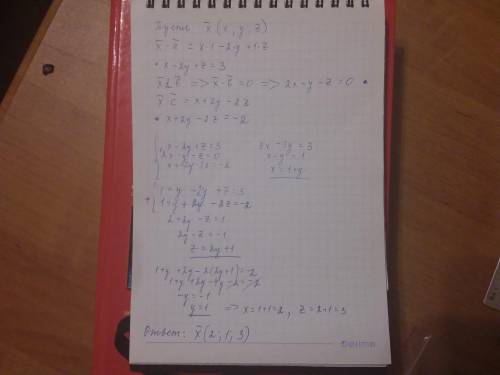 Пусть x̄ (x, y, z)
x̄·ā = x·1 - 2·y + 1·z
• x - 2y + z = 3
x̄⊥b̄ => x̄·b̄ = 0 => 2x - y - z = 0 •
x̄·c̄ = x + 2y - 2z
• x + 2y - 2z = -2
x - 2y + z = 3    3x - 3y = 3
2x - y - z = 0    x - y = 1
x + 2y - 2z = -2    x = 1 + y
1 + y - 2y + z = 3
+ 1 + y + 2y - 2z = -2
2 + 2y - z = 1
2y - z = -1
z = 2y + 1
1 + y + 2y - 2(2y + 1) = -2
1 + y + 2y - 4y - 2 = -2
-y = -1
y = 1 => x = 1 + 1 = 2, z = 2 + 1 = 3
Ответ: x̄ (2; 1; 3)